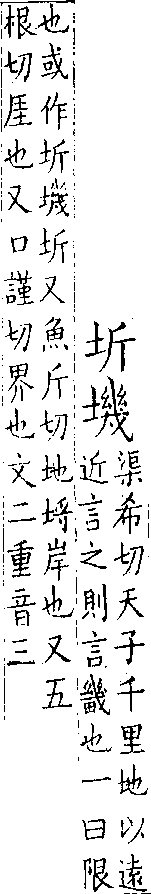 圻𡑞
渠希切天子千里地以遠
近言之則言畿也一曰限
也或作圻𡑞圻又魚斤切地埓岸也又五
根切厓也又口謹切界也文二重音三